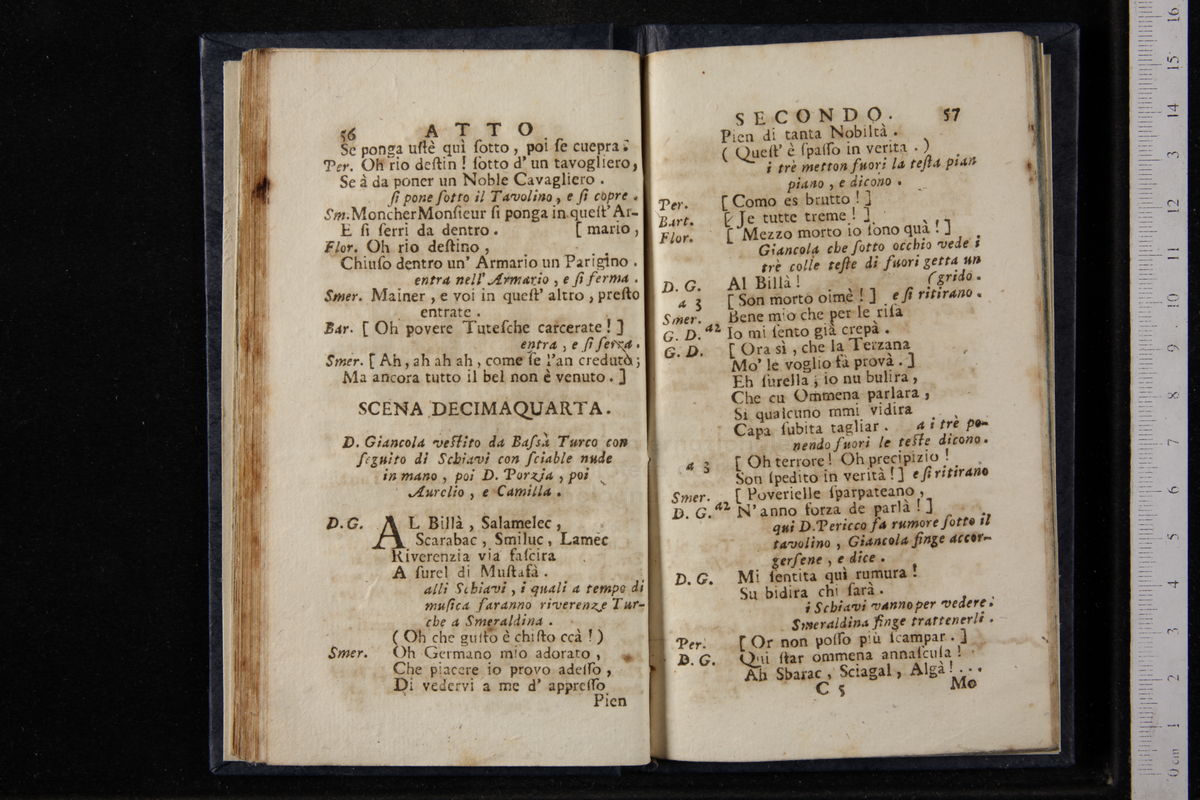 56 ATTO
Se ponga ustè quì sotto, poi se cuepra.
Per. Oh rio destin! sotto d'un tavogliero,
Se à da poner un Noble Cavagliero.
si pone sotto il Tavolino, e si copre.
Sm. Moncher Monsieur si ponga in quest' Ar-
E si serri da dentro. [mario,
Flor. Oh rio destino,
Chiuso dentro un' Armario un Parigino.
entra nell' Armario, e si ferma.
Smer. Mainer, e voi in quest' altro, presto
entrate.
Bar. [Oh povere Tutesche carcerate!]
entra, e si serra.
Smer. [Ah, ah ah ah, come se l'an credutò;
Ma ancora tutto il bel non è venuto.]
SCENA DECIMAQUARTA.
D. Giancola vestito da Bassà Turco con
seguito di Schiavi con sciable nude
in mano, poi D. Porzia, poi
Aurelio, e Camilla.
D. G. AL Billà, Salamelec,
Scarabac, Smiluc, Lamec
Riverenzia via fascira
A surel di Mustafà.
alli Schiavi, i quali a tempo di
musica faranno riverenze Tur-
che a Smeraldina.
(Oh che gusto è chisto ccà!)
Smer. Oh Germano mio adorato,
Che piacere io provo adesso,
Di vedervi a me d' appresso
Pien
SECONDO. 57
Pien di tanta Nobiltà.
(Quest' è spasso in verita.)
i trè metton fuori la testa pian
piano, e dicono.
Per. [Como es brutto!]
Bart. [Je tutte treme!]
Flor. [Mezzo morto io sono quà!]
Giancola che sotto occhio vede i
trè colle teste di fuori getta un
D. G. Al Billà! (grido.
a 3 [Son morto oimè!] e si ritirano.
Smer. Bene mio che per le risa
G. D. a2 Io mi sento già crepà.
G. D. [Ora sì, che la Terzana
Mo' le voglio fà provà.]
Eh surella, io nu bulira,
Che cu Ommena parlara,
Si qualcuno mmi vidira
Capa subita tagliar. a i trè po-
nendo fuori le teste dicono.
a 3 [Oh terrore! Oh precipizio!
Son spedito in verità!] e si ritirano
Smer. [Poverielle sparpateano,
D. G. a2 N'anno forza de parlà!]
qui D. Pericco fa rumore sotto il
tavolino, Giancola finge accor-
gersene, e dice.
D. G. Mi sentita quì rumura!
Su bidira chi sarà.
i Schiavi vanno per vedere.
Smeraldina finge trattenerli.
Per. [Or non posso più scampar.]
D. G. Qui star ommena annascusa!
Ah Sbarac, Sciagal, Algà!...
C 5 Mo
0 cm 1 2 3 4 5 6 7 8 9 10 11 12 13 14 15 16